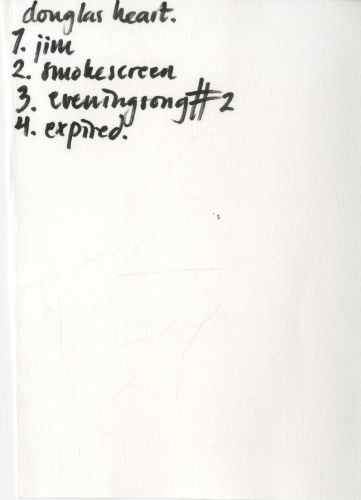 douglas heart.
1. jim
2. smokescreen
3. eveningsong#2
4. expired.